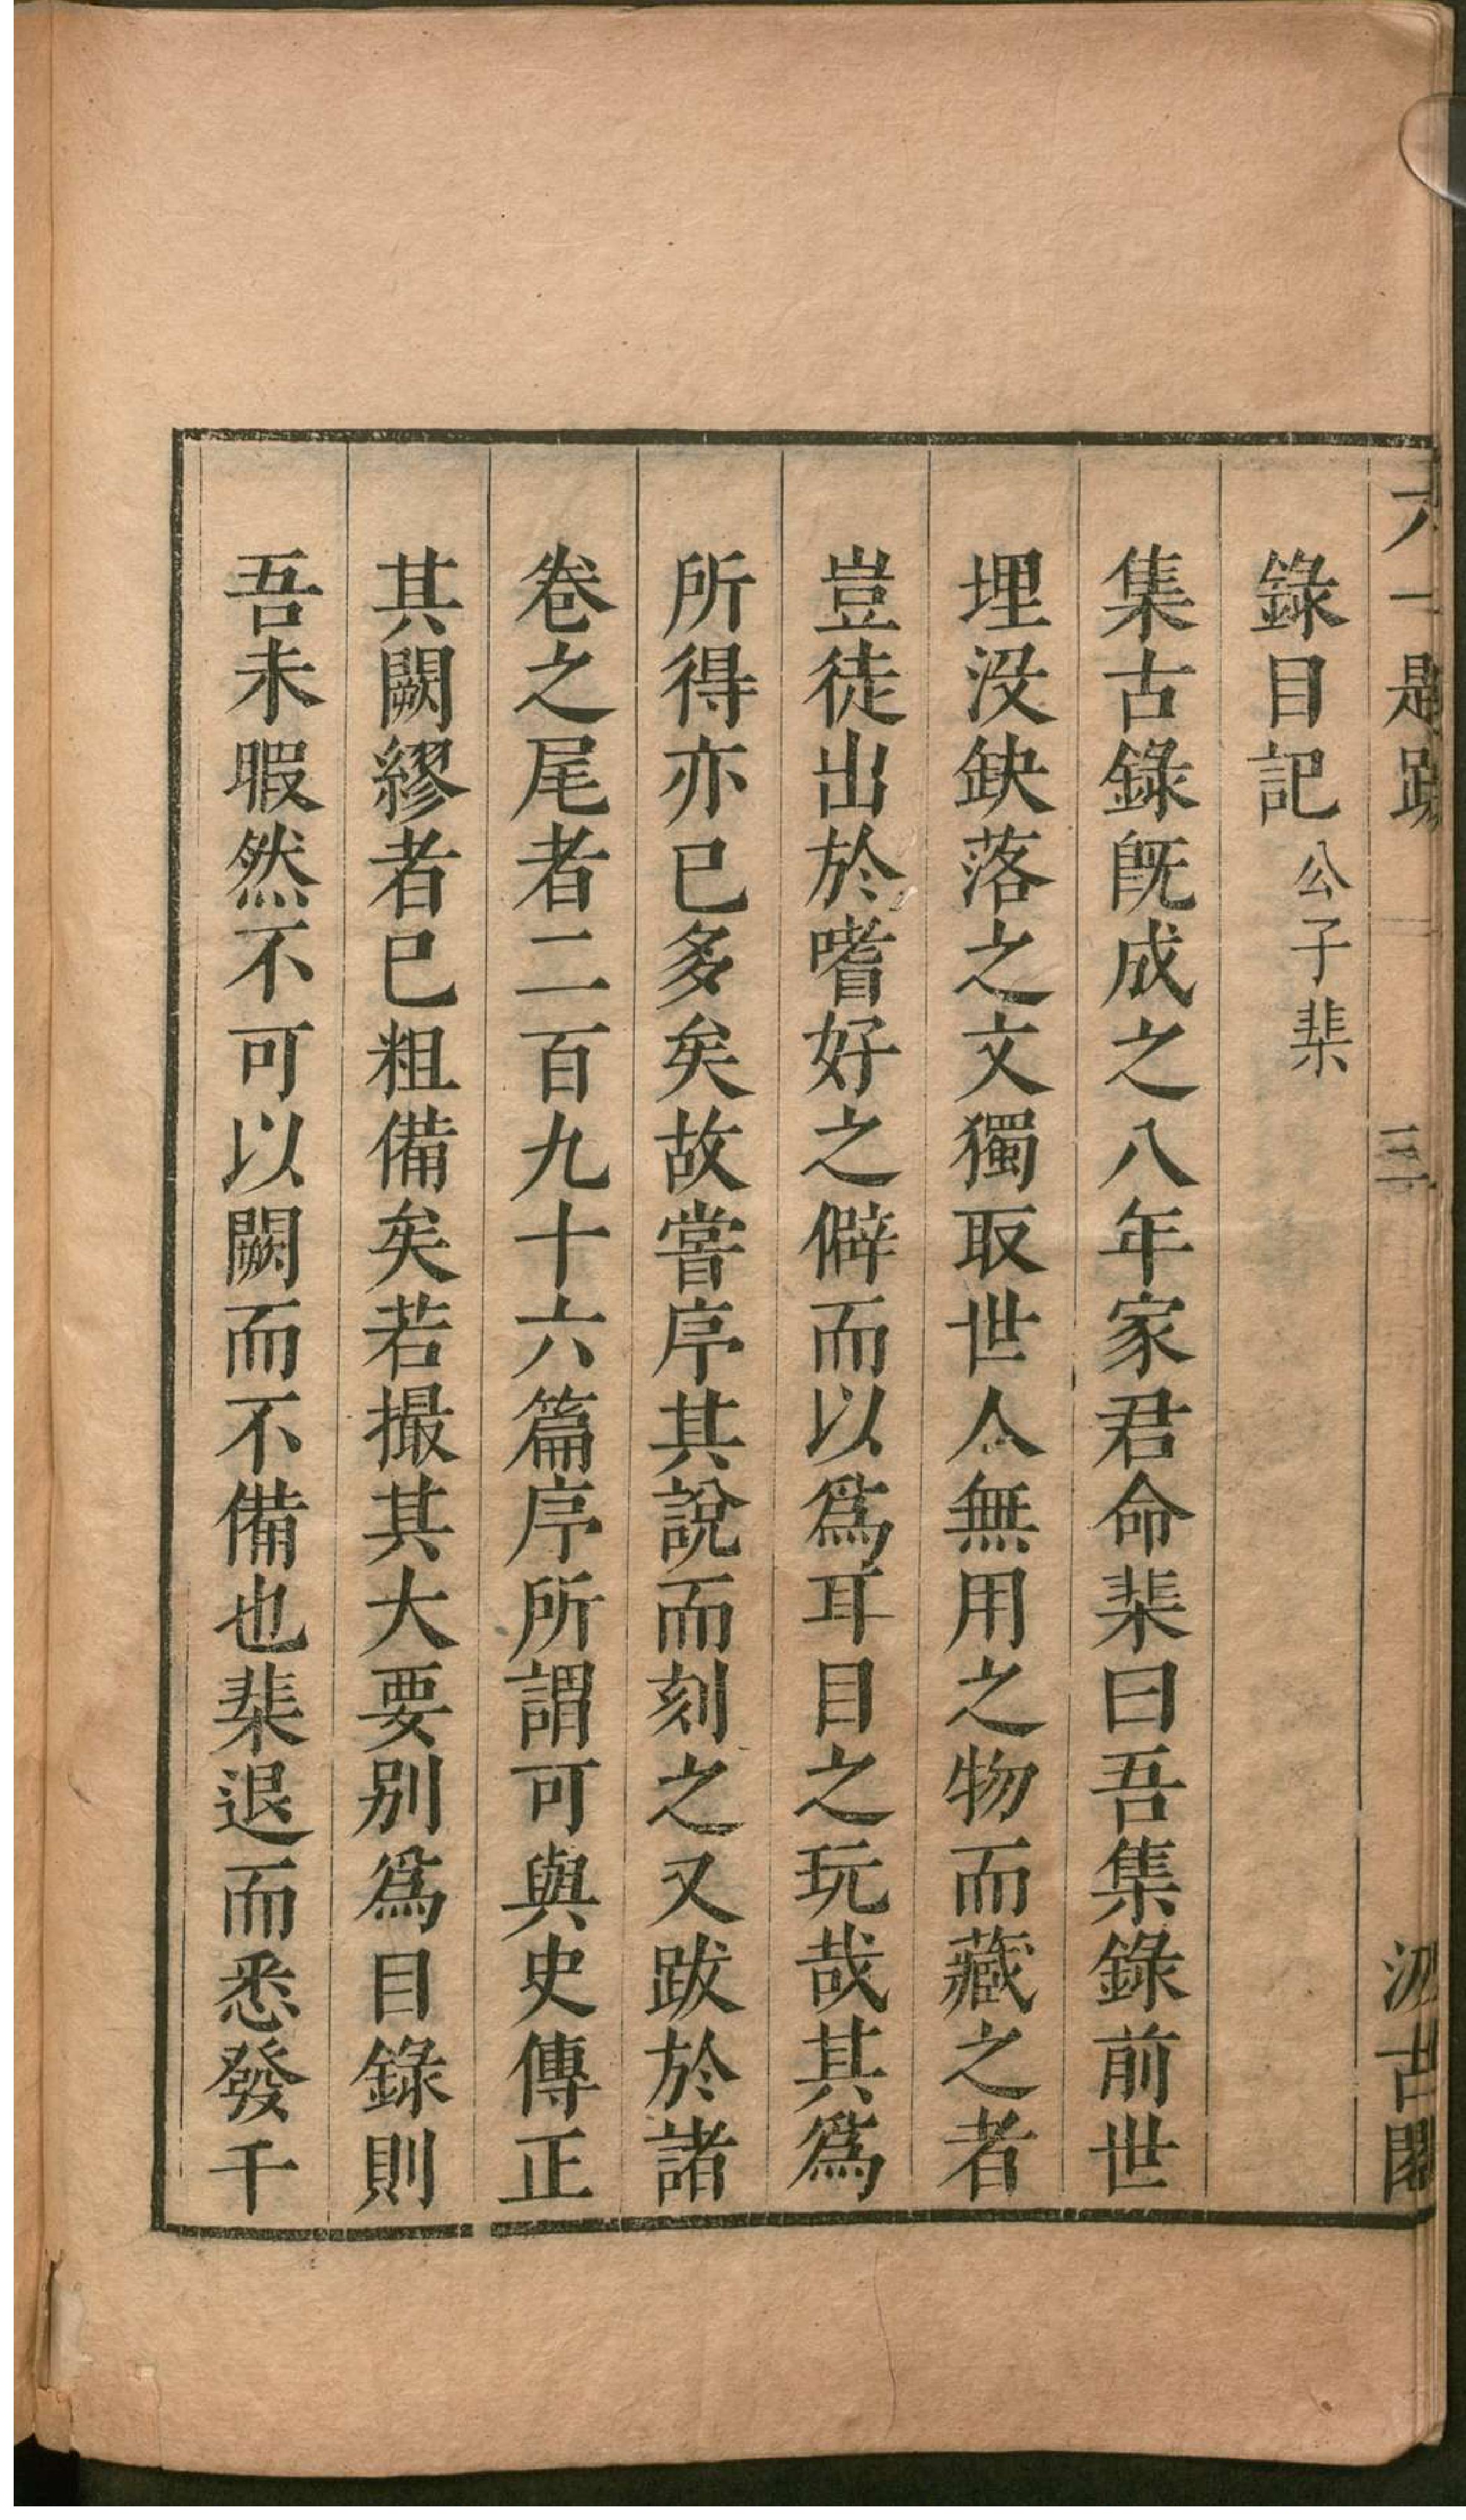 六一題跋 三 汲古閣
錄目記 公子棐
集古錄旣成之八年家君命棐曰吾集錄前世
埋沒缺落之文獨取世人無用之物而藏之者
豈徒出於嗜好之僻而以爲耳目之玩哉其爲
所得亦已多矣故嘗序其說而刻之又跋於諸
卷之尾者二百九十六篇序所謂可與史傳正
其闕繆者已粗備矣若撮其大要别爲目錄則
吾未暇然不可以闕而不備也棐退而悉發千